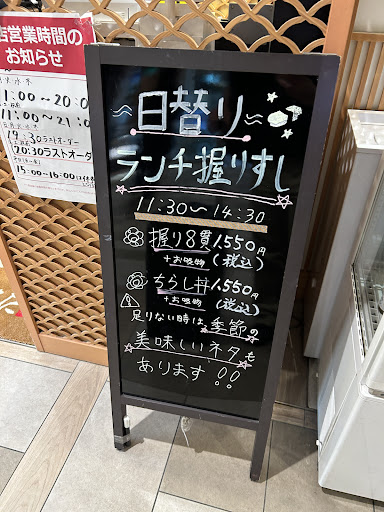 店営業時間の
お知らせ
11:00~20:0
11:00~21:0
19:30ラストオーダー
20:30ラストオーダ
15:00~16:00
~日替り~
ランチ握りすし
11:30~14:30
握り8貫 1,550円
+お吸物 (税込)
ちらし丼 1,550円
+お吸物 (税込)
足りない時は、季節の
美味しいネタも
あります!!